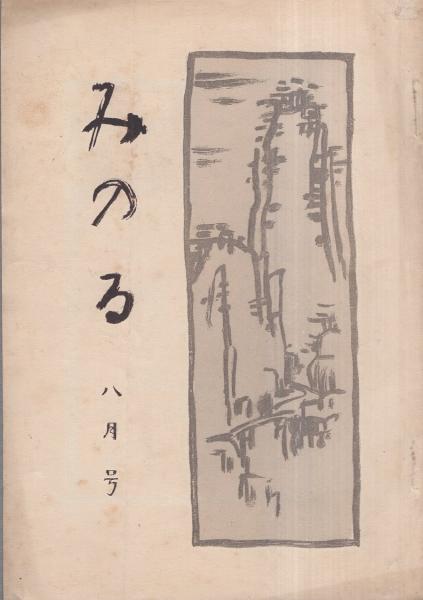 みのる
八月号